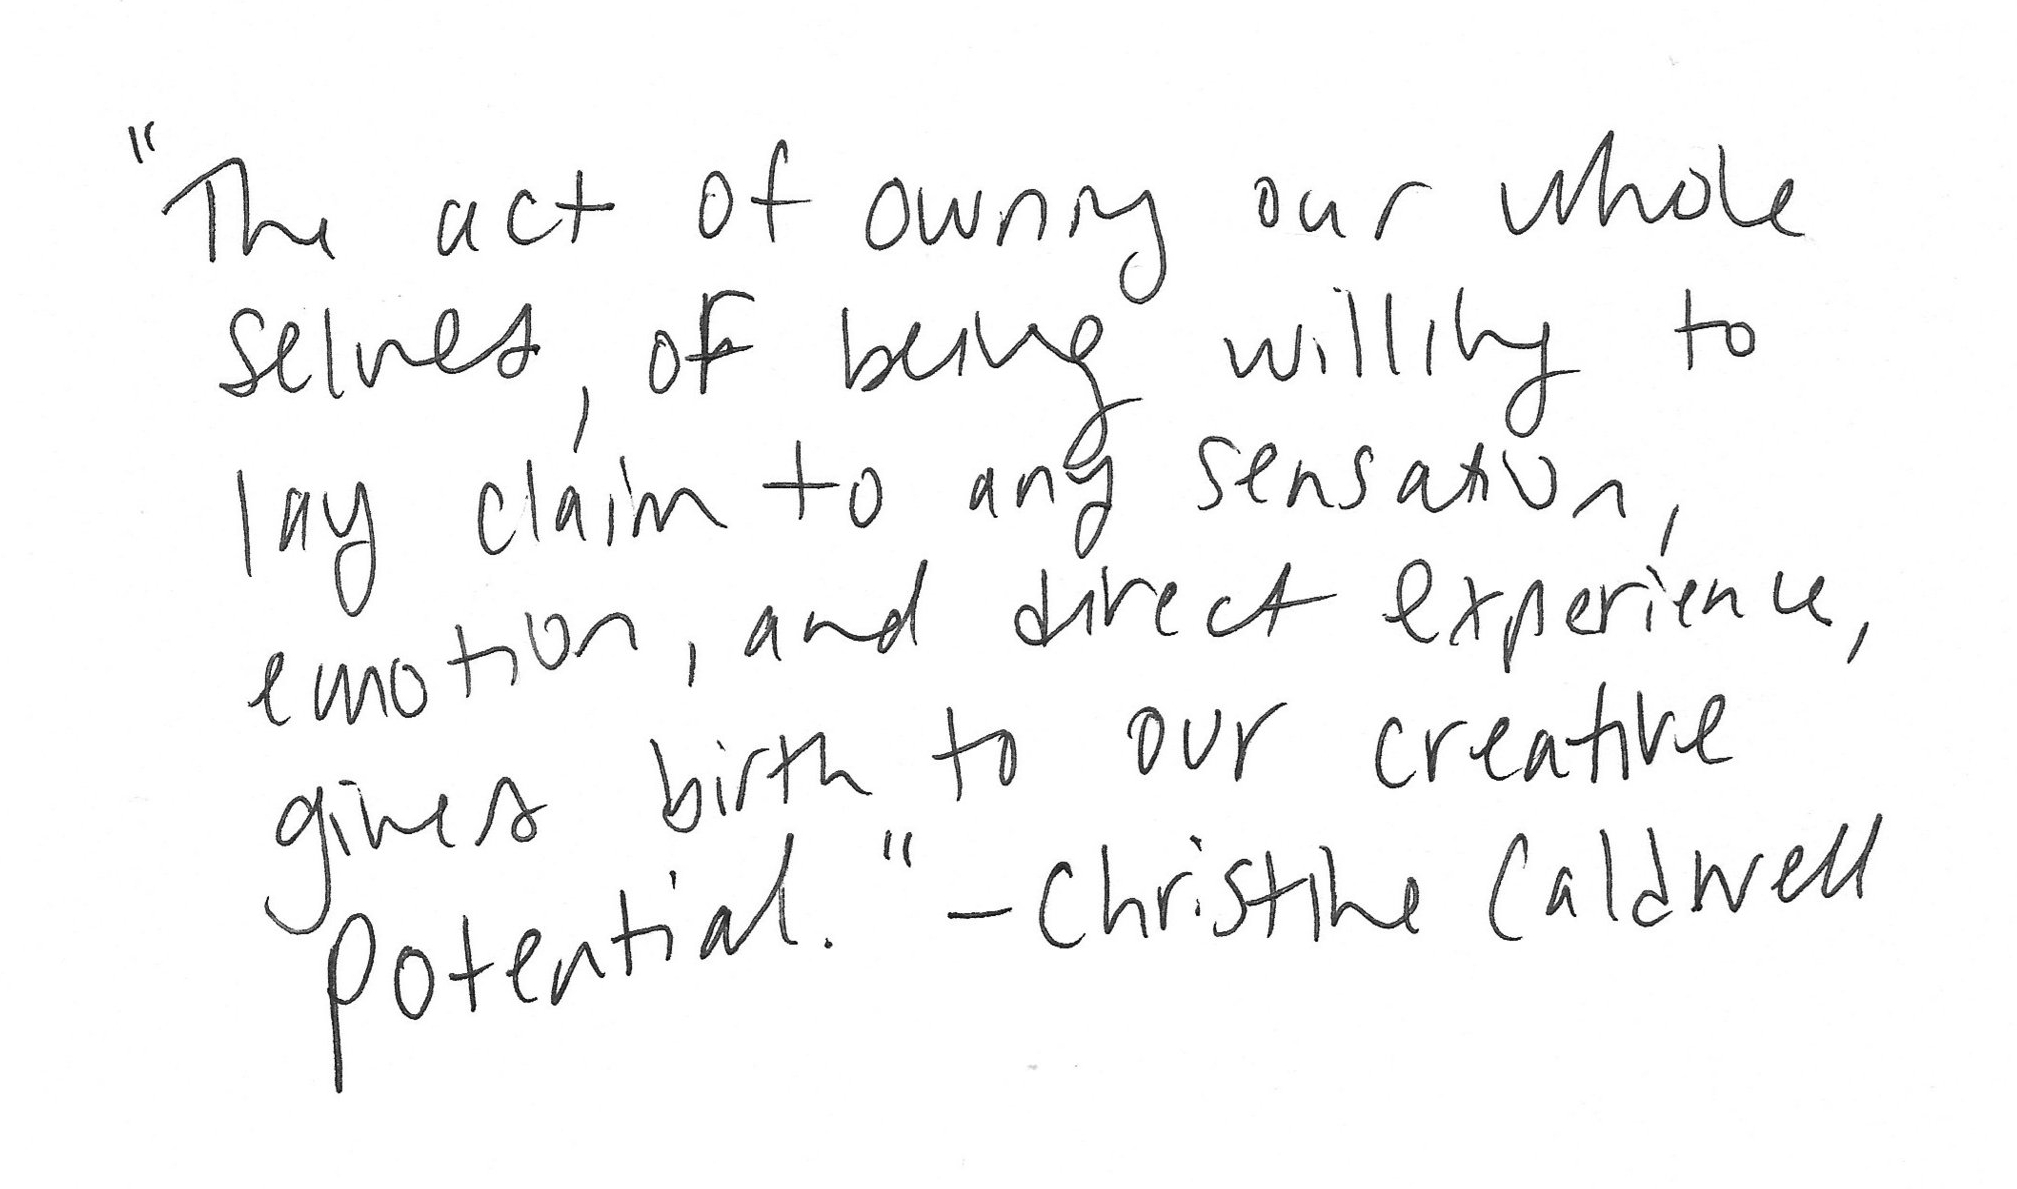 "The act of owning our whole
selves, of being willing to
lay claim to any sensation,
emotion, and direct experience,
gives birth to our creative
potential." - Christine Caldwell